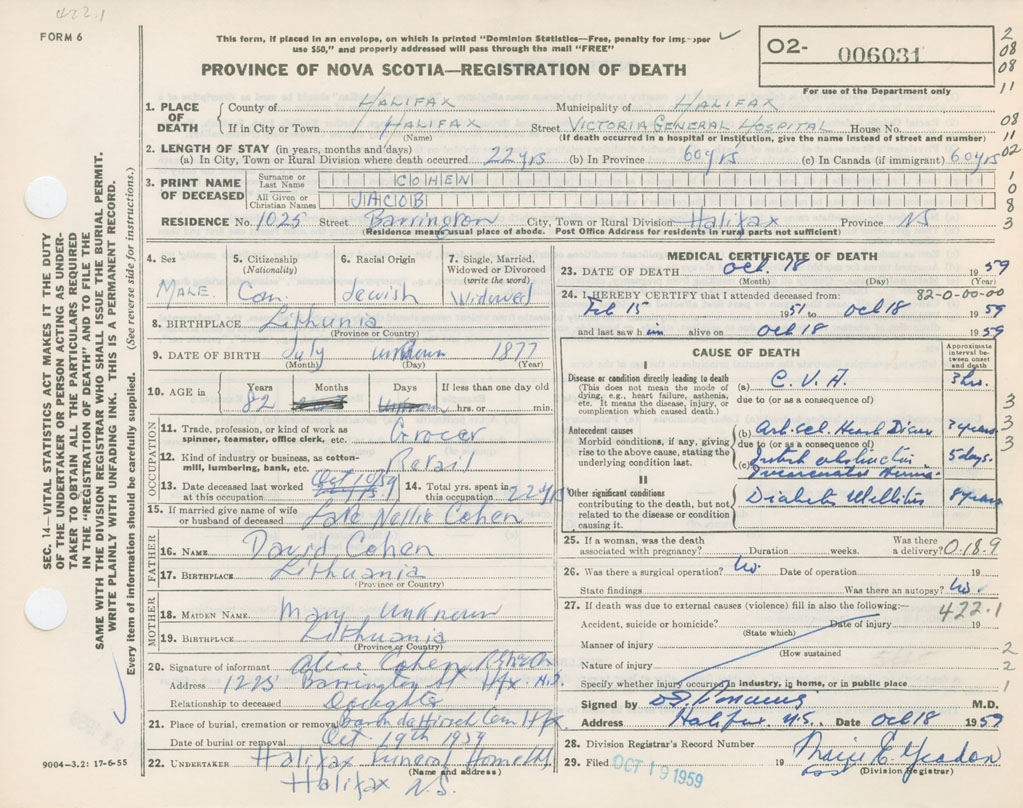 422.1
FORM 6
This form, if placed in an envelope, on which is printed "Dominion Statistics—Free, penalty for improper
use $50," and properly addressed will pass through the mail "FREE"
PROVINCE OF NOVA SCOTIA—REGISTRATION OF DEATH
O2- 006031
For use of the Department only
2
08
08
11
08
11
02
1
0
8
3
SEC. 14—VITAL STATISTICS ACT MAKES IT THE DUTY
OF THE UNDERTAKER OR PERSON ACTING AS UNDER-
TAKER TO OBTAIN ALL THE PARTICULARS REQUIRED
IN THE "REGISTRATION OF DEATH" AND TO FILE THE
SAME WITH THE DIVISION REGISTRAR WHO SHALL ISSUE THE BURIAL PERMIT.
WRITE PLAINLY WITH UNFADING INK. THIS IS A PERMANENT RECORD.
Every item of information should be carefully supplied. (See reverse side for instructions.)
1. PLACE OF DEATH
County of HALIFAX Municipality of HALIFAX
If in City or Town HALIFAX Street VICTORIA GENERAL HOSPITAL House No.
(Name) (If death occurred in a hospital or institution, give the name instead of street and number)
2. LENGTH OF STAY (in years, months and days)
(a) In City, Town or Rural Division where death occurred 22 yrs (b) In Province 60 yrs (c) In Canada (if immigrant) 60 yrs
3. PRINT NAME OF DECEASED
Surname or Last Name COHEN
All Given or Christian Names JACOB
RESIDENCE No. 1025 Street Barrington City, Town or Rural Division Halifax Province NS
(Residence means usual place of abode. Post Office Address for residents in rural parts not sufficient)
4. Sex 5. Citizenship (Nationality) 6. Racial Origin 7. Single, Married, Widowed or Divorced (write the word)
MALE Can. Jewish Widowed
8. BIRTHPLACE Lithunia
(Province or Country)
9. DATE OF BIRTH July unknown 1877
(Month) (Day) (Year)
10. AGE in Years Months Days If less than one day old
82 Unknown hrs. or min.
OCCUPATION
11. Trade, profession, or kind of work as spinner, teamster, office clerk, etc. Grocer
12. Kind of industry or business, as cotton-mill, lumbering, bank, etc. Retail
13. Date deceased last worked at this occupation Oct 10/59
14. Total yrs. spent in this occupation 22 yrs
15. If married give name of wife or husband of deceased Late Nellie Cohen
FATHER
16. NAME David Cohen
17. BIRTHPLACE Lithuania
(Province or Country)
MOTHER
18. MAIDEN NAME Mary Unknown
19. BIRTHPLACE Lithuania
(Province or Country)
20. Signature of informant Alice Cohen
Address 1225 Barrington St Hfx N.S.
Relationship to deceased Daughter
21. Place of burial, cremation or removal Baron de Hirsch Cem Hfx
Date of burial or removal Oct 19th 1959
22. UNDERTAKER Halifax Funeral Home
(Name and address)
Halifax N.S.
9004—3.2: 17-6-55
MEDICAL CERTIFICATE OF DEATH
23. DATE OF DEATH Oct. 18 1959
(Month) (Day) (Year)
24. I HEREBY CERTIFY that I attended deceased from: 82-0-00-00
Feb 15 1951 to Oct 18 1959
and last saw him alive on Oct 18 1959
CAUSE OF DEATH
Approximate interval between onset and death
I
Disease or condition directly leading to death
(This does not mean the mode of dying, e.g., heart failure, asthenia, etc. It means the disease, injury, or complication which caused death.)
(a) C.V.A. 3 hrs.
due to (or as a consequence of)
Antecedent causes
Morbid conditions, if any, giving rise to the above cause, stating the underlying condition last.
(b) Art. Scl. Heart Disease 7 years
due to (or as a consequence of)
(c) Intest obstruction 5 days.
Incarcerated Hernia
II
Other significant conditions
contributing to the death, but not related to the disease or condition causing it.
Diabetes Mellitus 8 years
3
3
3
25. If a woman, was the death associated with pregnancy? Duration weeks. Was there a delivery? 0.18.9
26. Was there a surgical operation? No. Date of operation 19
State findings Was there an autopsy? No.
27. If death was due to external causes (violence) fill in also the following:— 422.1
Accident, suicide or homicide? Date of injury 19
(State which)
Manner of injury 2
(How sustained
Nature of injury 2
Specify whether injury occurred in industry, in home, or in public place 1
Signed by M.D.
Address Halifax N.S. Date Oct 18 1959
28. Division Registrar's Record Number
29. Filed OCT 19 1959 19
(Division Registrar)